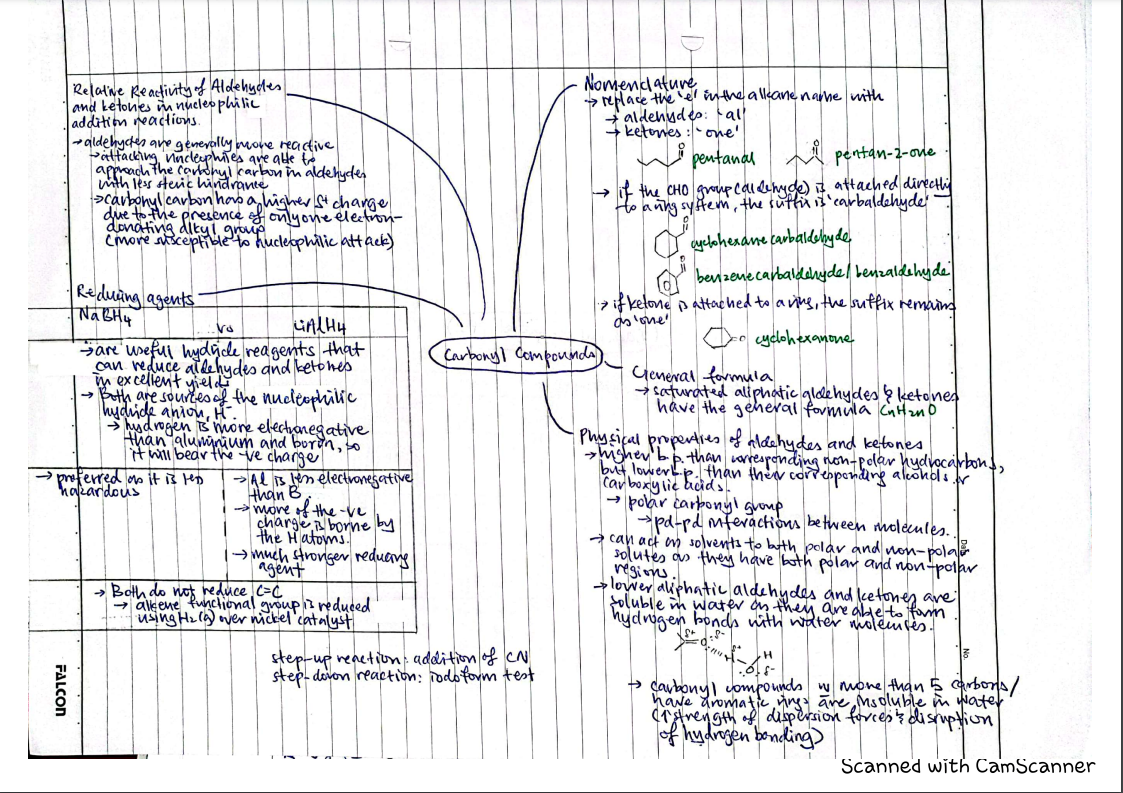 Relative Reactivity of Aldehydes
and ketones in nucleophilic
addition reactions.
→ aldehydes are generally more reactive
→ attacking nucleophiles are able to
approach the carbonyl carbon in aldehydes
with less steric hindrance
→ carbonyl carbon has a higher δ+ charge
due to the presence of only one electron-
donating alkyl group
(more susceptible to nucleophilic attack)
Reducing agents
NaBH4 vs LiAlH4
→ are useful hydride reagents that
can reduce aldehydes and ketones
in excellent yield
→ Both are sources of the nucleophilic
hydride anion, H-
→ hydrogen is more electronegative
than aluminium and boron, so
it will bear the -ve charge
→ preferred as it is less
hazardous
→ Al is less electronegative
than B.
→ more of the -ve
charge is borne by
the H atoms.
→ much stronger reducing
agent
→ Both do not reduce C=C
→ alkene functional group is reduced
using H2(g) over nickel catalyst
step-up reaction: addition of CN
step-down reaction: iodoform test
Carbonyl Compounds
Nomenclature
→ replace the 'e' in the alkane name with
→ aldehydes: 'al'
→ ketones: 'one'
O pentanal O pentan-2-one
→ if the CHO group (aldehyde) is attached directly
to a ring system, the suffix is 'carbaldehyde'
O cyclohexane carbaldehyde
O benzene carbaldehyde/ benzaldehyde
→ if ketone is attached to a ring, the suffix remains
as 'one'
=O cyclohexanone
General formula
→ saturated aliphatic aldehydes & ketones
have the general formula CnH2nO
Physical properties of aldehydes and ketones
→ higher b.p. than corresponding non-polar hydrocarbons,
but lower b.p. than their corresponding alcohols or
carboxylic acids.
→ polar carbonyl group
→ pd-pd interactions between molecules.
→ can act as solvents to both polar and non-polar
solutes as they have both polar and non-polar
regions.
→ lower aliphatic aldehydes and ketones are
soluble in water as they are able to form
hydrogen bonds with water molecules.
δ+ O δ-
H δ+ H
O δ-
→ carbonyl compounds w more than 5 carbons/
have aromatic rings are insoluble in water
(↑ strength of dispersion forces & disruption
of hydrogen bonding)
Date
No.
FALCON
Scanned with CamScanner